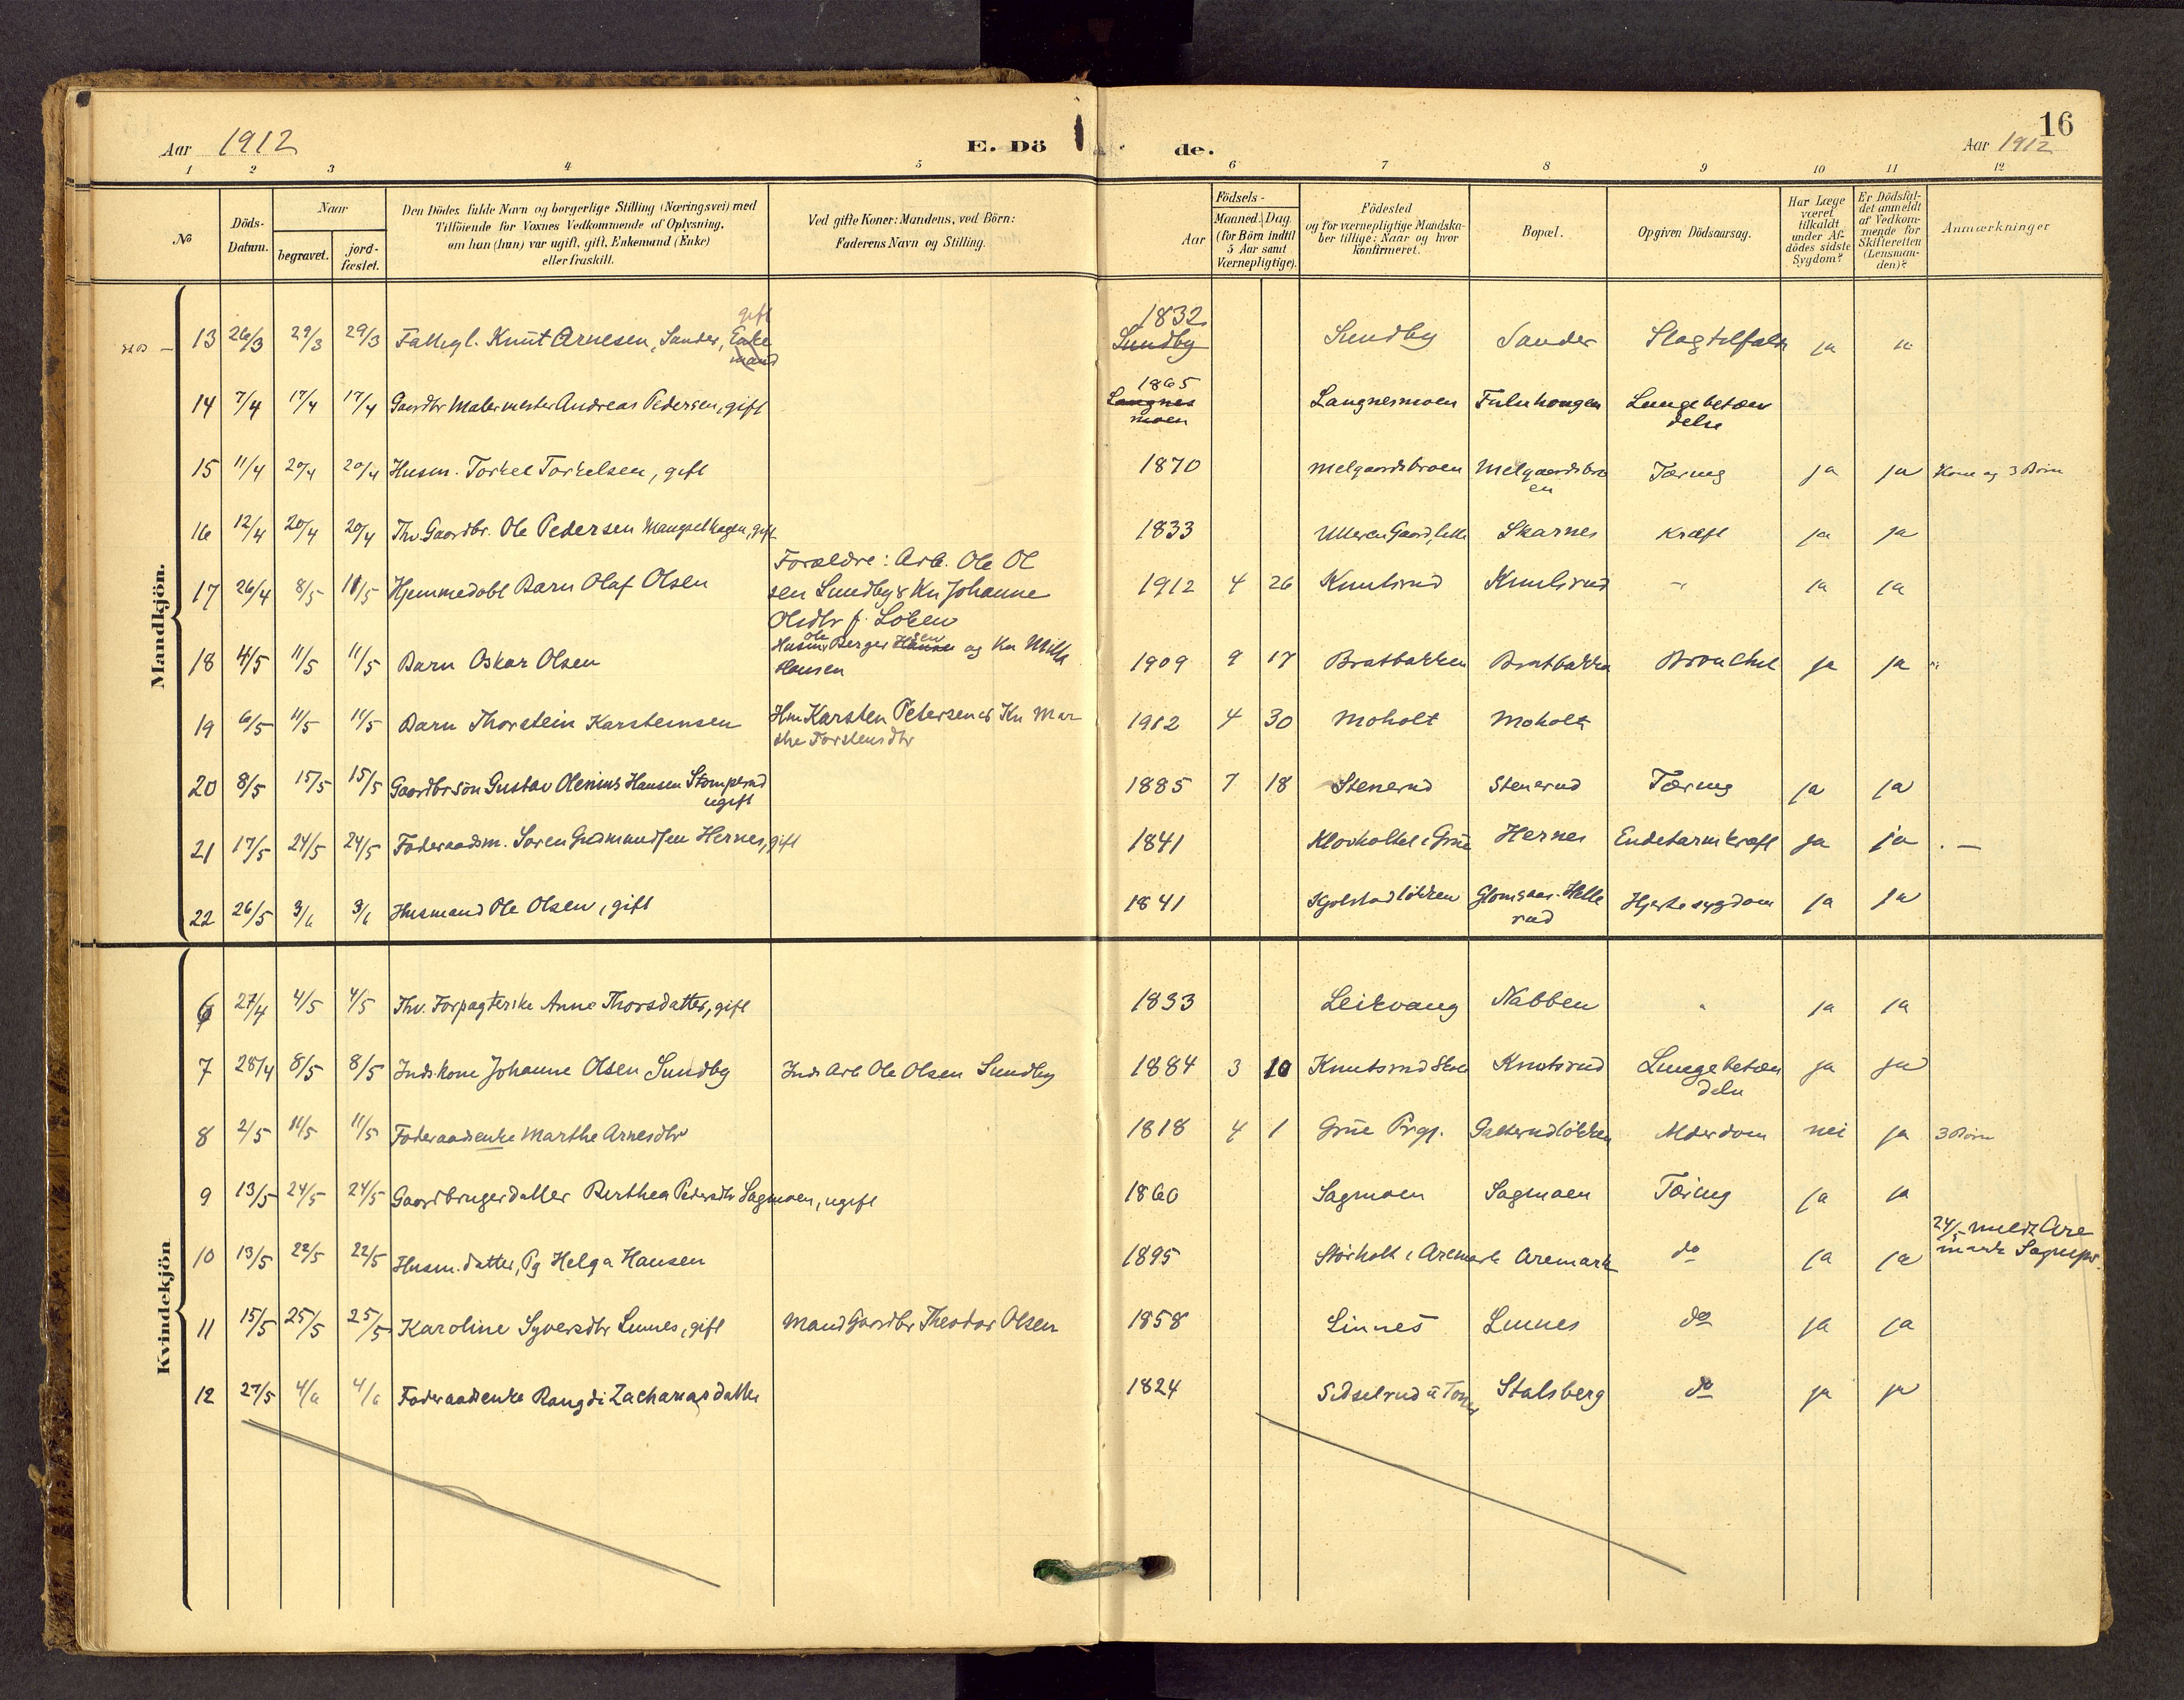 Aar 1912 E. Dö
de. Aar 1912 16
1 2 3 4 5 6 7 8 9 10 11 12
No
Döds-Datum.
Naar
begravet.
jord-fæstet.
Den Dödes fulde Navn og borgerlige Stilling (Næringsvei) med
Tilföiende for Voxnes Vedkommende af Oplysning,
om han (hun) var ugift, gift, Enkemand (Enke)
eller fraskilt.
Ved gifte Koner: Mandens, ved Börn:
Faderens Navn og Stilling.
Födsels-
Aar
Maaned. Dag.
(for Börn indtil
5 Aar samt
Værnepligtige).
Födested
og for værnepligtige Mandska-
ber tillige: Naar og hvor
konfirmeret.
Bopæl.
Opgiven Dödsaarsag.
Har Læge
været
tilkaldt
under Af-
dödes sidste
Sygdom?
Er Dödsfal-
det anmeldt
af Vedkom-
mende for
Skifteretten
(Lensman-
den)?
Anmærkninger
Mandkjön.
13 26/3 29/3 29/3 Fattigl. Knut Arnesen, Sander, Enke mand gift 1832 Sundby Sundby Sander Slagtilfælde ja "
14 7/4 17/4 17/4 Gaardbr Malermester Andreas Pedersen, gift 1865 Langnes moen Langnesmoen Fuluhaugen Lungebetæn
delse
15 11/4 20/4 20/4 Husm. Torkel Torkelsen, gift 1870 Melgaardsbroen Melgaardsbro
en Tæring ja ja Kone og 3 Börn
16 12/4 20/4 20/4 Thv. Gaardbr. Ole Pedersen Mangselhagen, gift 1833 Ulleren Gaard, Skarnes Kræft ja ja
17 26/4 8/5 11/5 Hjemmedöbt Barn Olaf Olsen Forældre: Arb. Ole Ol
sen Lundby & Ku Johanne
Olsdtr f. Löken 1912 4 26 Knutsrud Knutsrud " ja ja
18 4/5 11/5 11/5 Barn Oskar Olsen Husm. Ole Bergersen Hansen og Ku Milla
Hansen 1909 9 17 Bratbakken Bratbakken Bronchit ja ja "
19 6/5 11/5 11/5 Barn Thorstein Karstensen Hm Karsten Petersen & Ku Mar
the Torstensdtr 1912 4 30 Moholt Moholt
20 8/5 15/5 15/5 Gaardbrsön Gustav Olenius Hansen Stomperud
ugift 1885 7 18 Stenerud Stenerud Tæring ja ja
21 17/5 24/5 24/5 Föderaadsm. Soren Gudmundsen Hernes, gift 1841 Klovholtet i Grue Hernes Endetarmkræft ja ja . —
22 26/5 3/6 3/6 Husmand Ole Olsen, gift 1841 Kjolstadlökken Glomsaas. Helle
rud Hjertesygdom ja ja
Kvindekjön
6 27/4 4/5 4/5 Thv. Forpagterske Anne Thorsdatter, gift 1833 Leikvang Nabben " ja ja
7 28/4 8/5 8/5 Indskone Johanne Olsen Sundby Inds Arb Ole Olsen Sundby 1884 3 10 Knutsrud Knutsrud Lungebetæn
delse ja ja
8 2/5 11/5 11/5 Föderaadsenke Marthe Arnesdtr 1818 4 1 Grue Prgj. Galterudlökken Alderdom nei ja 3 Börn
9 13/5 24/5 24/5 Gaardbrugerdatter Berthea Pedersdtr Sagmoen, ugift 1860 Sagmoen Sagmoen Tæring ja ja
10 13/5 22/5 22/5 Husm. datter, Pg Helga Hansen 1895 Storholt i Aremark Aremark do ja ja 24/5 meldt Are
mark Sognepr.
11 15/5 25/5 25/5 Karoline Syversdtr Linnes, gift Mand Gaardbr Theodor Olsen 1858 Linnes Linnes do ja ja
12 27/5 4/6 4/6 Föderaadsenke Rangdi Zachariasdatter 1824 Sidselrud Stalsberg do ja ja